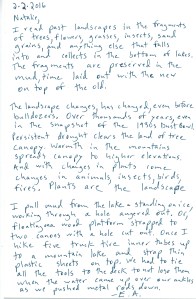 2-2-2016
Natalie,
I read past landscapes in the fragments
of trees, flowers, grasses, insects, sand
grains, and anything else that falls
into and collects in the bottom of lakes.
The fragments are preserved in the
mud, time laid out with the new
on top of the old.
The landscape changes, has changed, even before
bulldozers. Over thousands of years, even
in the snapshot of the 1930s Dust Bowl,
persistent drought clears the land of tree
canopy. Warmth in the mountains
spreads canopy to higher elevations.
And with changes in plants come
changes in animals, insects, birds,
fires. Plants are the landscape
I pull mud from the lake standing on ice,
working through a hole augered out. Or,
floating on a wood platform strapped to
two canoes with a hole cut out. Once I
hike five truck tire inner tubes up
to a mountain lake and strap thin
plastic sheets on top. We had to tie
all the tools to the deck to not lose them
when the water came up over our ankles
as we pushed metal rods down.
-E.A.